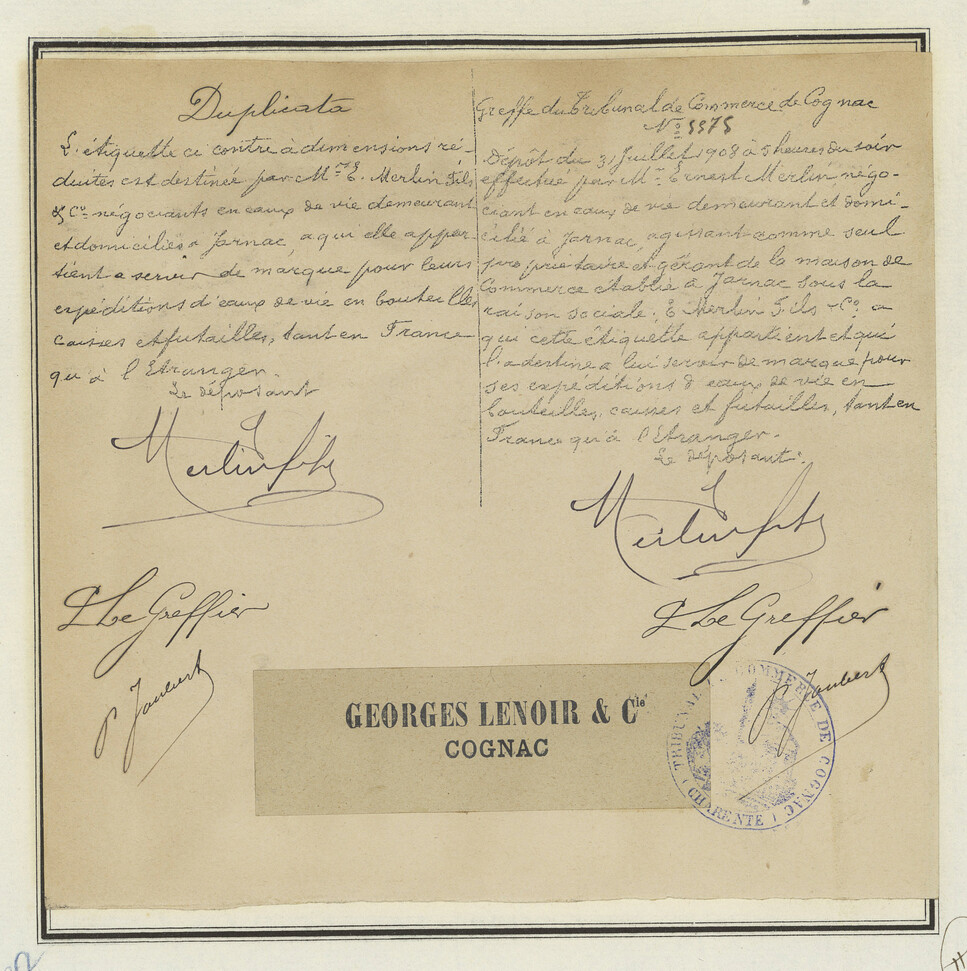 Duplicata
L'étiquette ci contre à dimensions ré-
duites est destinée par Mrs E. Merlin Fils
& Co négociants en eaux de vie demeurant
et domiciliés à Jarnac, a qui elle appar-
tient a servir de marque pour leurs
expéditions d'eaux de vie en bouteilles
caisses et futailles, tant en France
qu'à l'Etranger.
Le déposant
Merlin fils
P Le Greffier
P Joubert
Greffe du Tribunal de Commerce de Cognac
No 5575
Dépôt du 31 Juillet 1908 à 5 heures du soir
effectué par Mr Ernest Merlin, négo-
ciant en eaux de vie demeurant et domi-
cilié à Jarnac, agissant comme seul
propriétaire et gérant de la maison de
Commerce etablie à Jarnac sous la
raison sociale: E Merlin Fils & Co, a
qui cette étiquette appartient et qui
l'a destine a lui servir de marque pour
ses expéditions d'eaux de vie en
bouteilles, caisses et futailles, tant en
France qu'à l'Etranger.
Le déposant:
Merlin fils
P Le Greffier
P Joubert
GEORGES LENOIR & Cie
COGNAC
TRIBUNAL DE COMMERCE DE COGNAC
CHARENTE